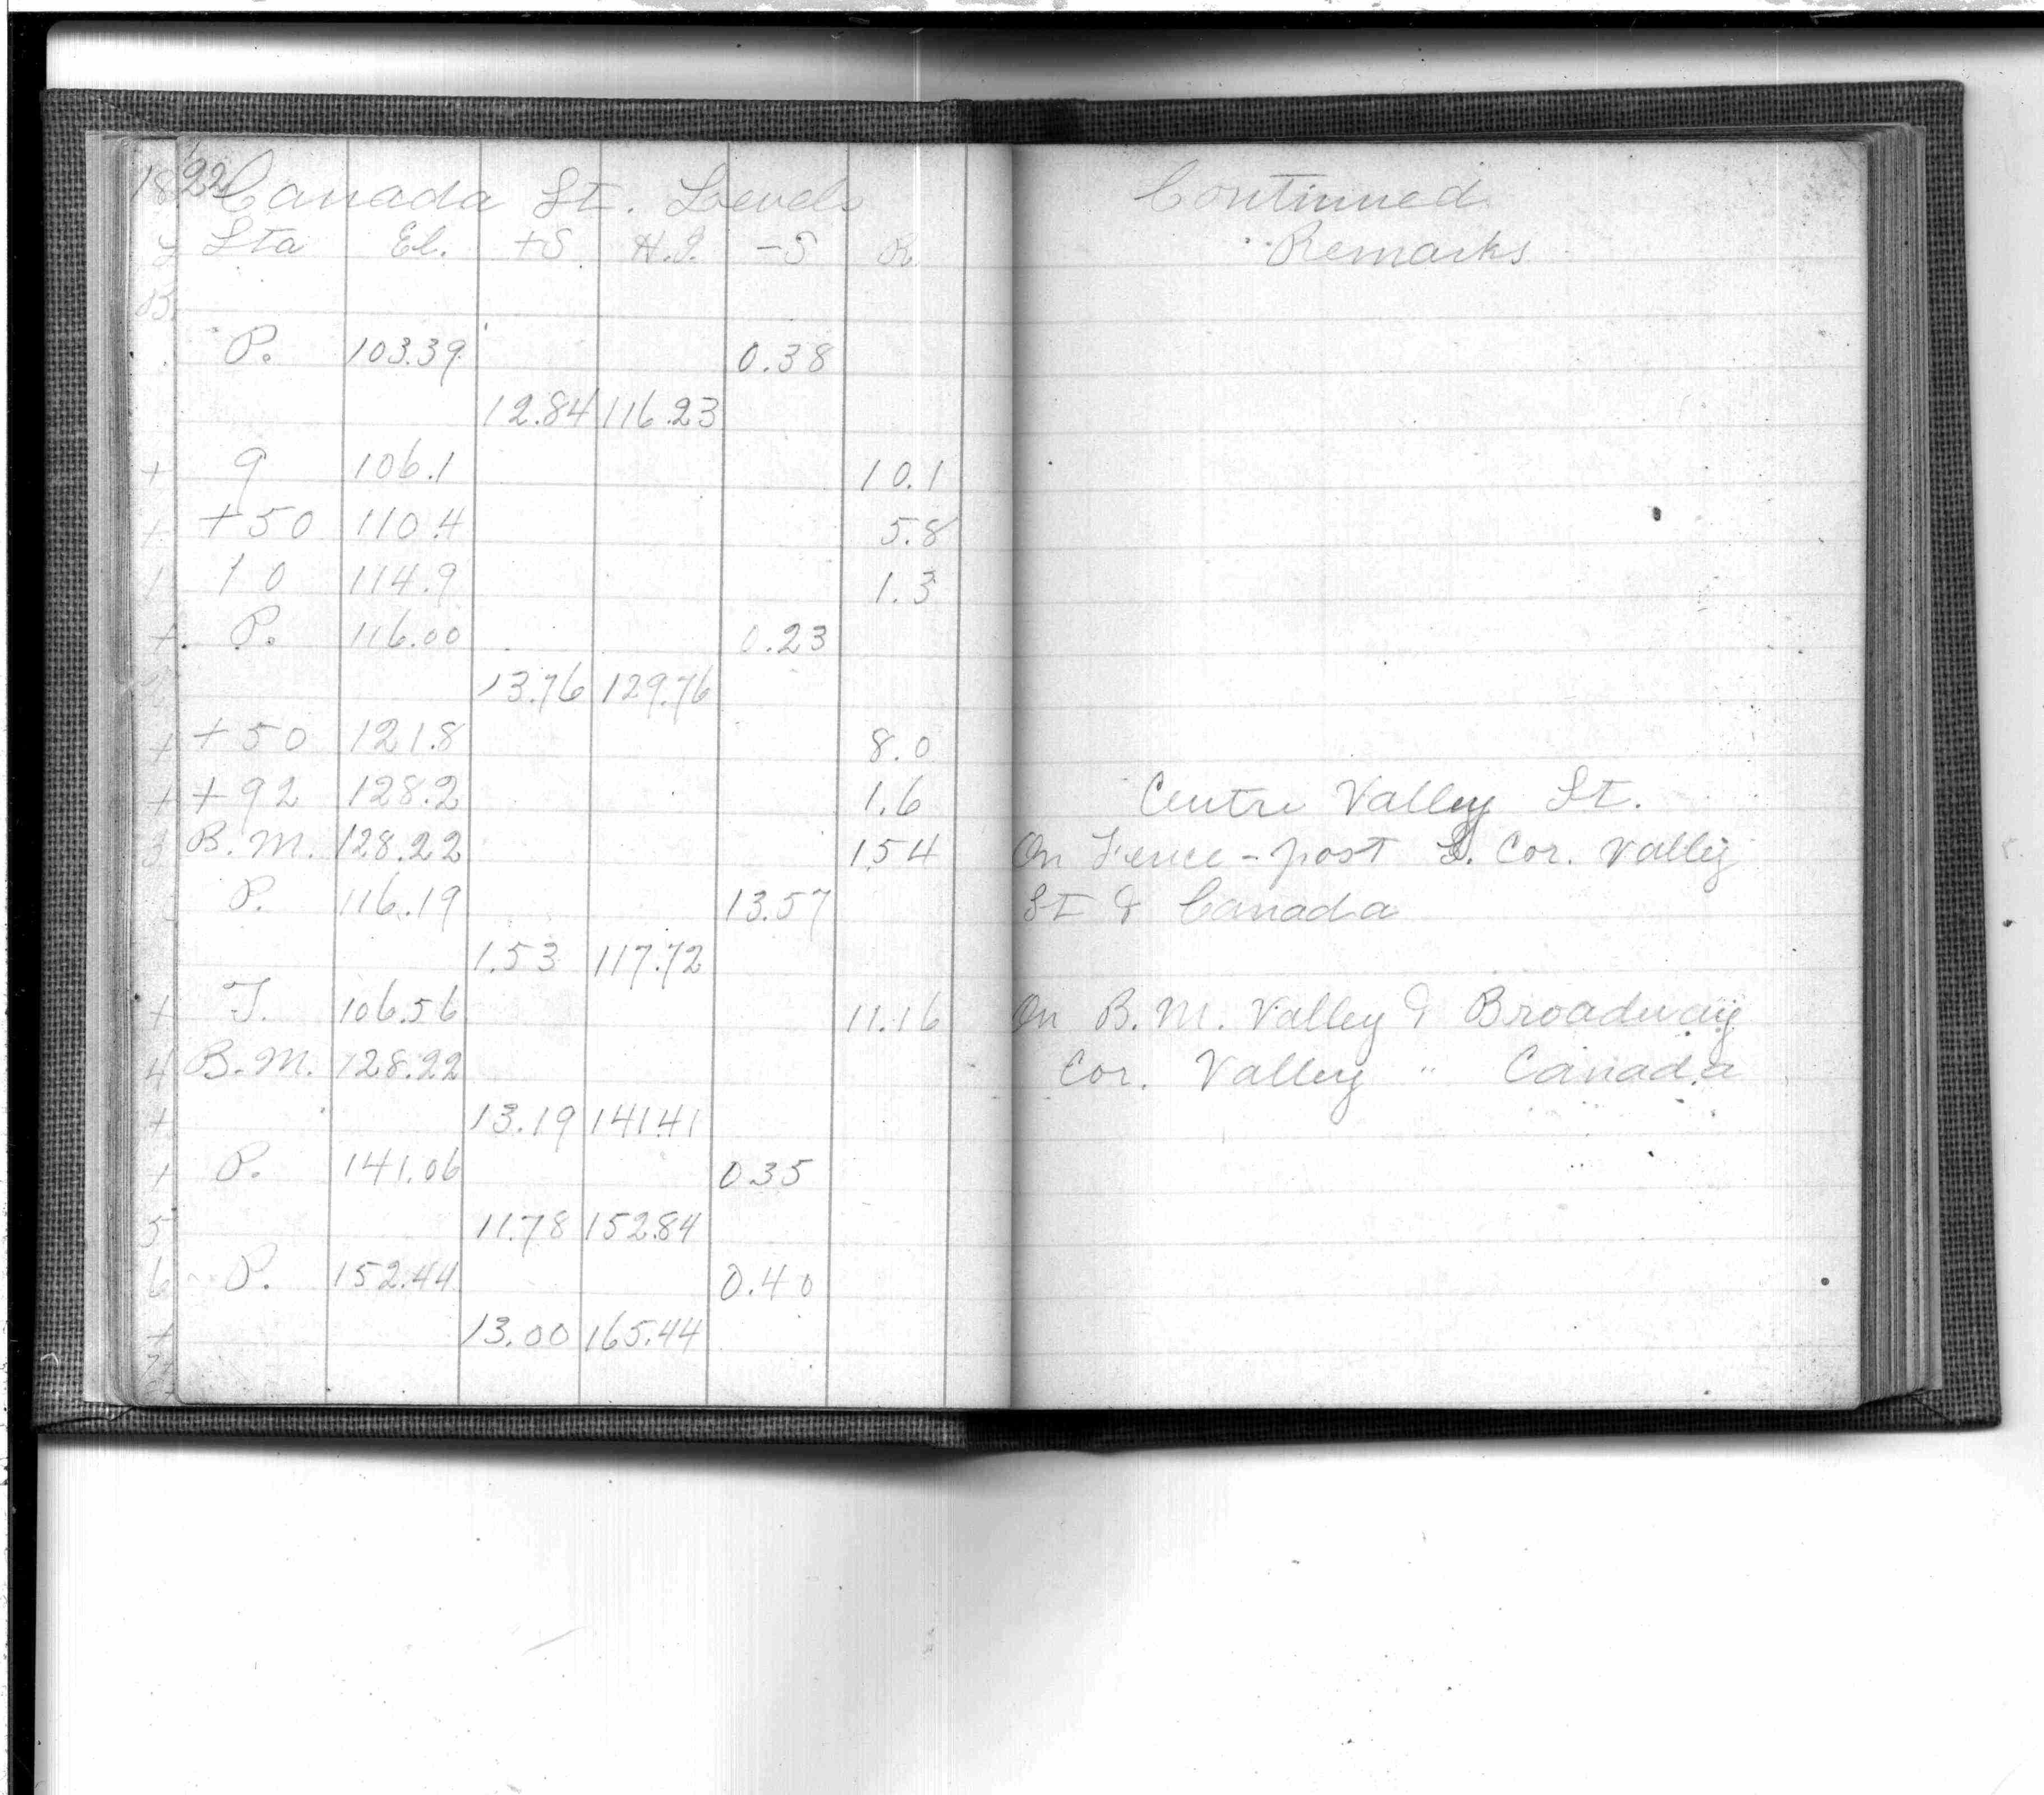 22 Canada St. Levels Continued
Sta El. +S H.I. -S R. Remarks
P. 103.39 0.38
12.84 116.23
9 106.1 10.1
+50 110.4 5.8
10 114.9 1.3
P. 116.00 0.23
13.76 129.76
+50 121.8 8.0
+92 128.2 1.6 Centre Valley St.
B.M. 128.22 1.54 On Fence-post Cor. Valley
P. 116.19 13.57 St & Canada
1.53 117.72
T. 106.56 11.16 On B.M. Valley & Broadway
B.M. 128.22 Cor. Valley " Canada
13.19 141.41
P. 141.06 0.35
11.78 152.84
P. 152.44 0.40
13.00 165.44